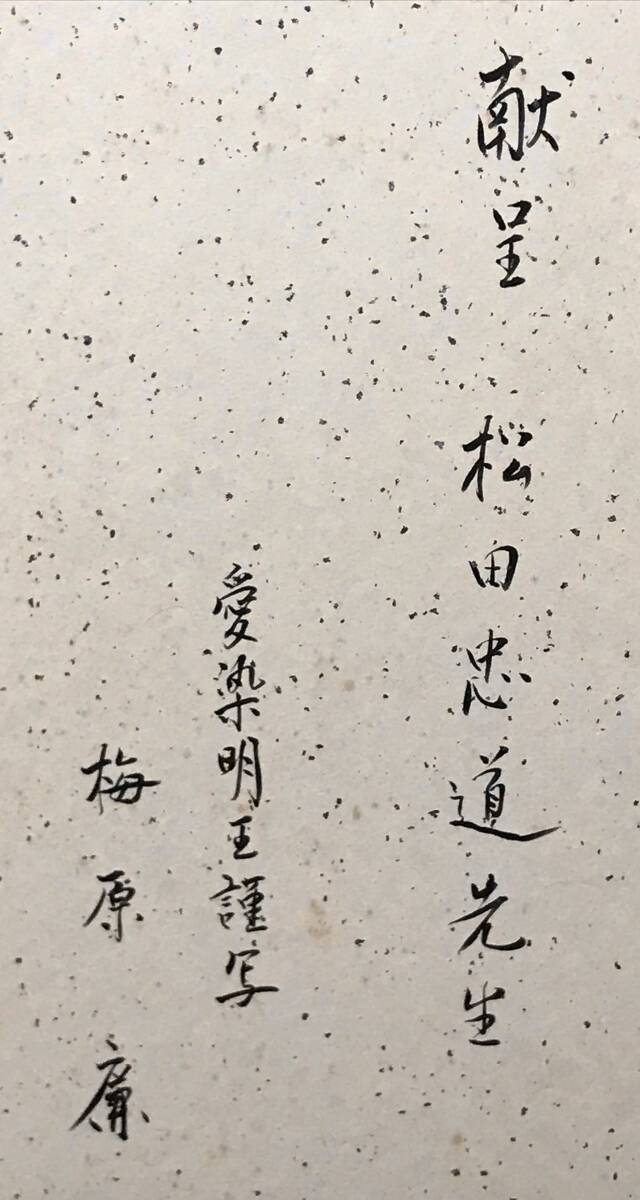 献呈 松田忠道先生
愛染明王謹写
梅原 廉